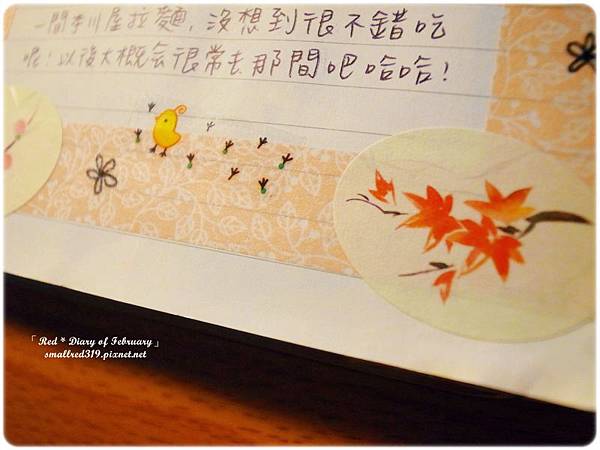 一間李川屋拉麵, 沒想到很不錯吃
呢! 以後大概会很常去那間吧哈哈!
「 Red * Diary of February 」
smallred319.pixnet.net